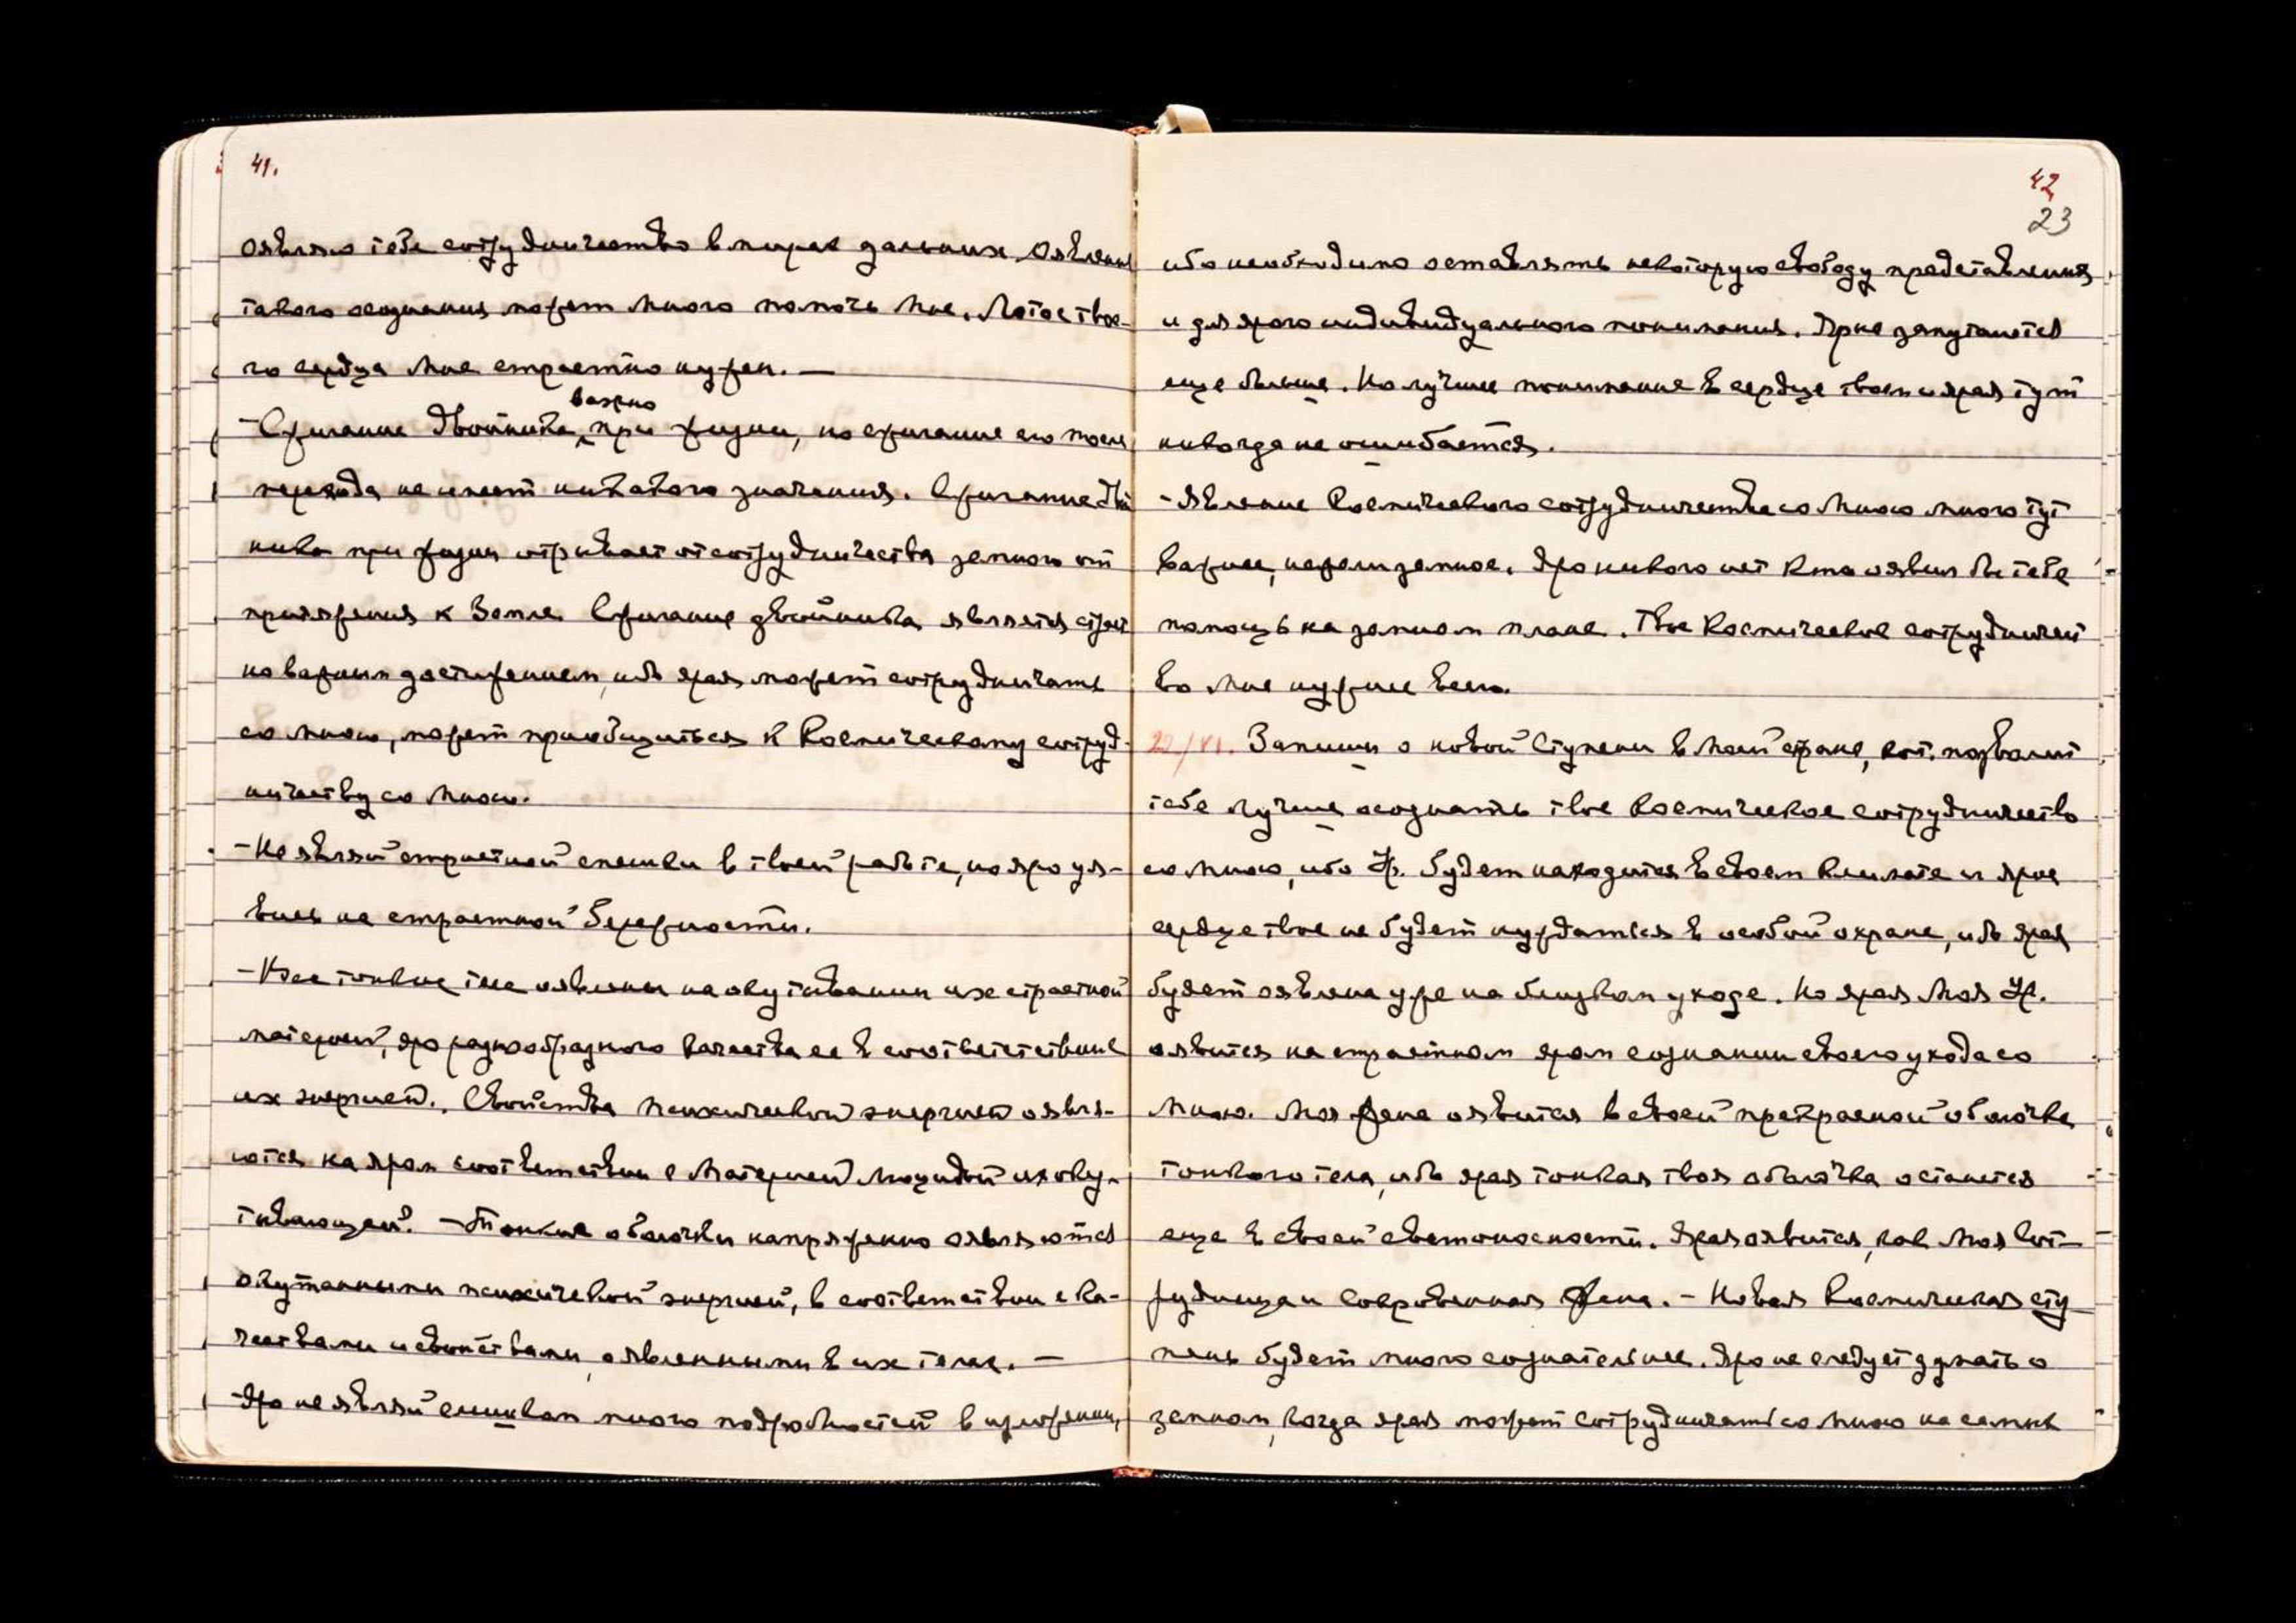 41.
оявляю тебе сотрудничество в мирах дальних. Оявлени
такого осознания может много помочь Мне. Лотос твое-
го сердца Мне страстно нужен. —
- Сжигание двойника важно при жизни, но сжигание его после
перехода не имеет никакого значения. Сжигание двой
ника при жизни отрывает от сотрудничества земного от
притяжения к Земле. Сжигание двойника является страст
но важным достижением, ибо ярая может сотрудничать
со Мною, может приобщиться к Космическому сотруд-
ничеству со Мною.
- Не являй страстной спешки в твоей работе, но яро уя-
вись на страстной бережности.
- Все тонкие тела оявлены на окутывании их страстной
материей, яро разнообразного качества ее в соответствие
их энергией. Свойства психической энергией оявля-
ются на яром соответствии с Материей Люцидой их оку-
тывающей. - Тонкие оболочки напряженно оявляются
окутанными психической энергией, в соответствии с ка-
чествами и свойствами, оявленными в их телах. —
- Яро не являй слишком много подробностей в изложении,
42
23
ибо необходимо оставлять некоторую свободу представления
и для ярого индивидуального понимания. Ярые запутаются
еще больше. Но лучшее понимание в сердце твоем и ярая тут
никогда не ошибается.
- Явление Космического сотрудничества со Мною много тут
важнее, нежели земное. Яро никого нет кто оявил бы тебе
помощь на земном плане. Твое Космическое сотрудничест
во Мне нужнее всего.
22/VI. Запиши о новой Ступени в Моей стране, кот. позволит
тебе лучше осознать твое Космическое сотрудничество
со Мною, ибо Ур. будет находиться в своем климате и ярое
сердце твое не будет нуждаться в особой охране, ибо ярая
будет оявлена уже на близком уходе. Но ярая Моя Ур.
оявится на страстном яром сознании своего ухода со
Мною. Моя Жена оявится в своей прекрасной оболочке
тонкого тела, ибо ярая тонкая твоя оболочка останется
еще в своей светоносности. Ярая оявится, как Моя Сот-
рудница и Сокровенная Жена. - Новая Космическая сту
пень будет много сознательнее. Яро не следует думать о
земном, когда ярая может сотрудничать со Мною на самых